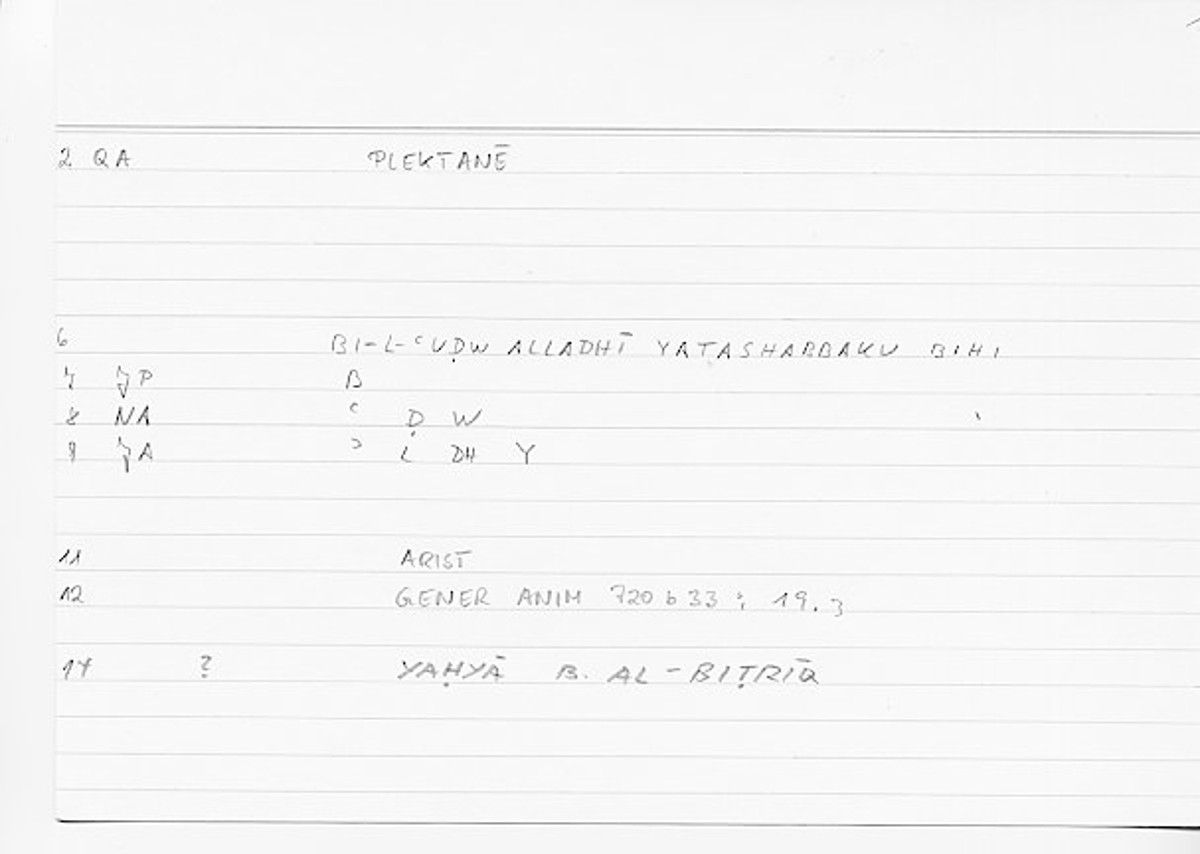 2 QA PLEKTANĒ
6 BI-L-ʿUḌW ALLADHĪ YAṬASHABBAKU BIHI
7 P B
8 NA ʿ Ḍ W
9 A ʾ L DH Y
11 ARIST
12 GENER ANIM 720 b 33 ; 19.3
14 ? YAḤYĀ B. AL-BIṬRĪQ